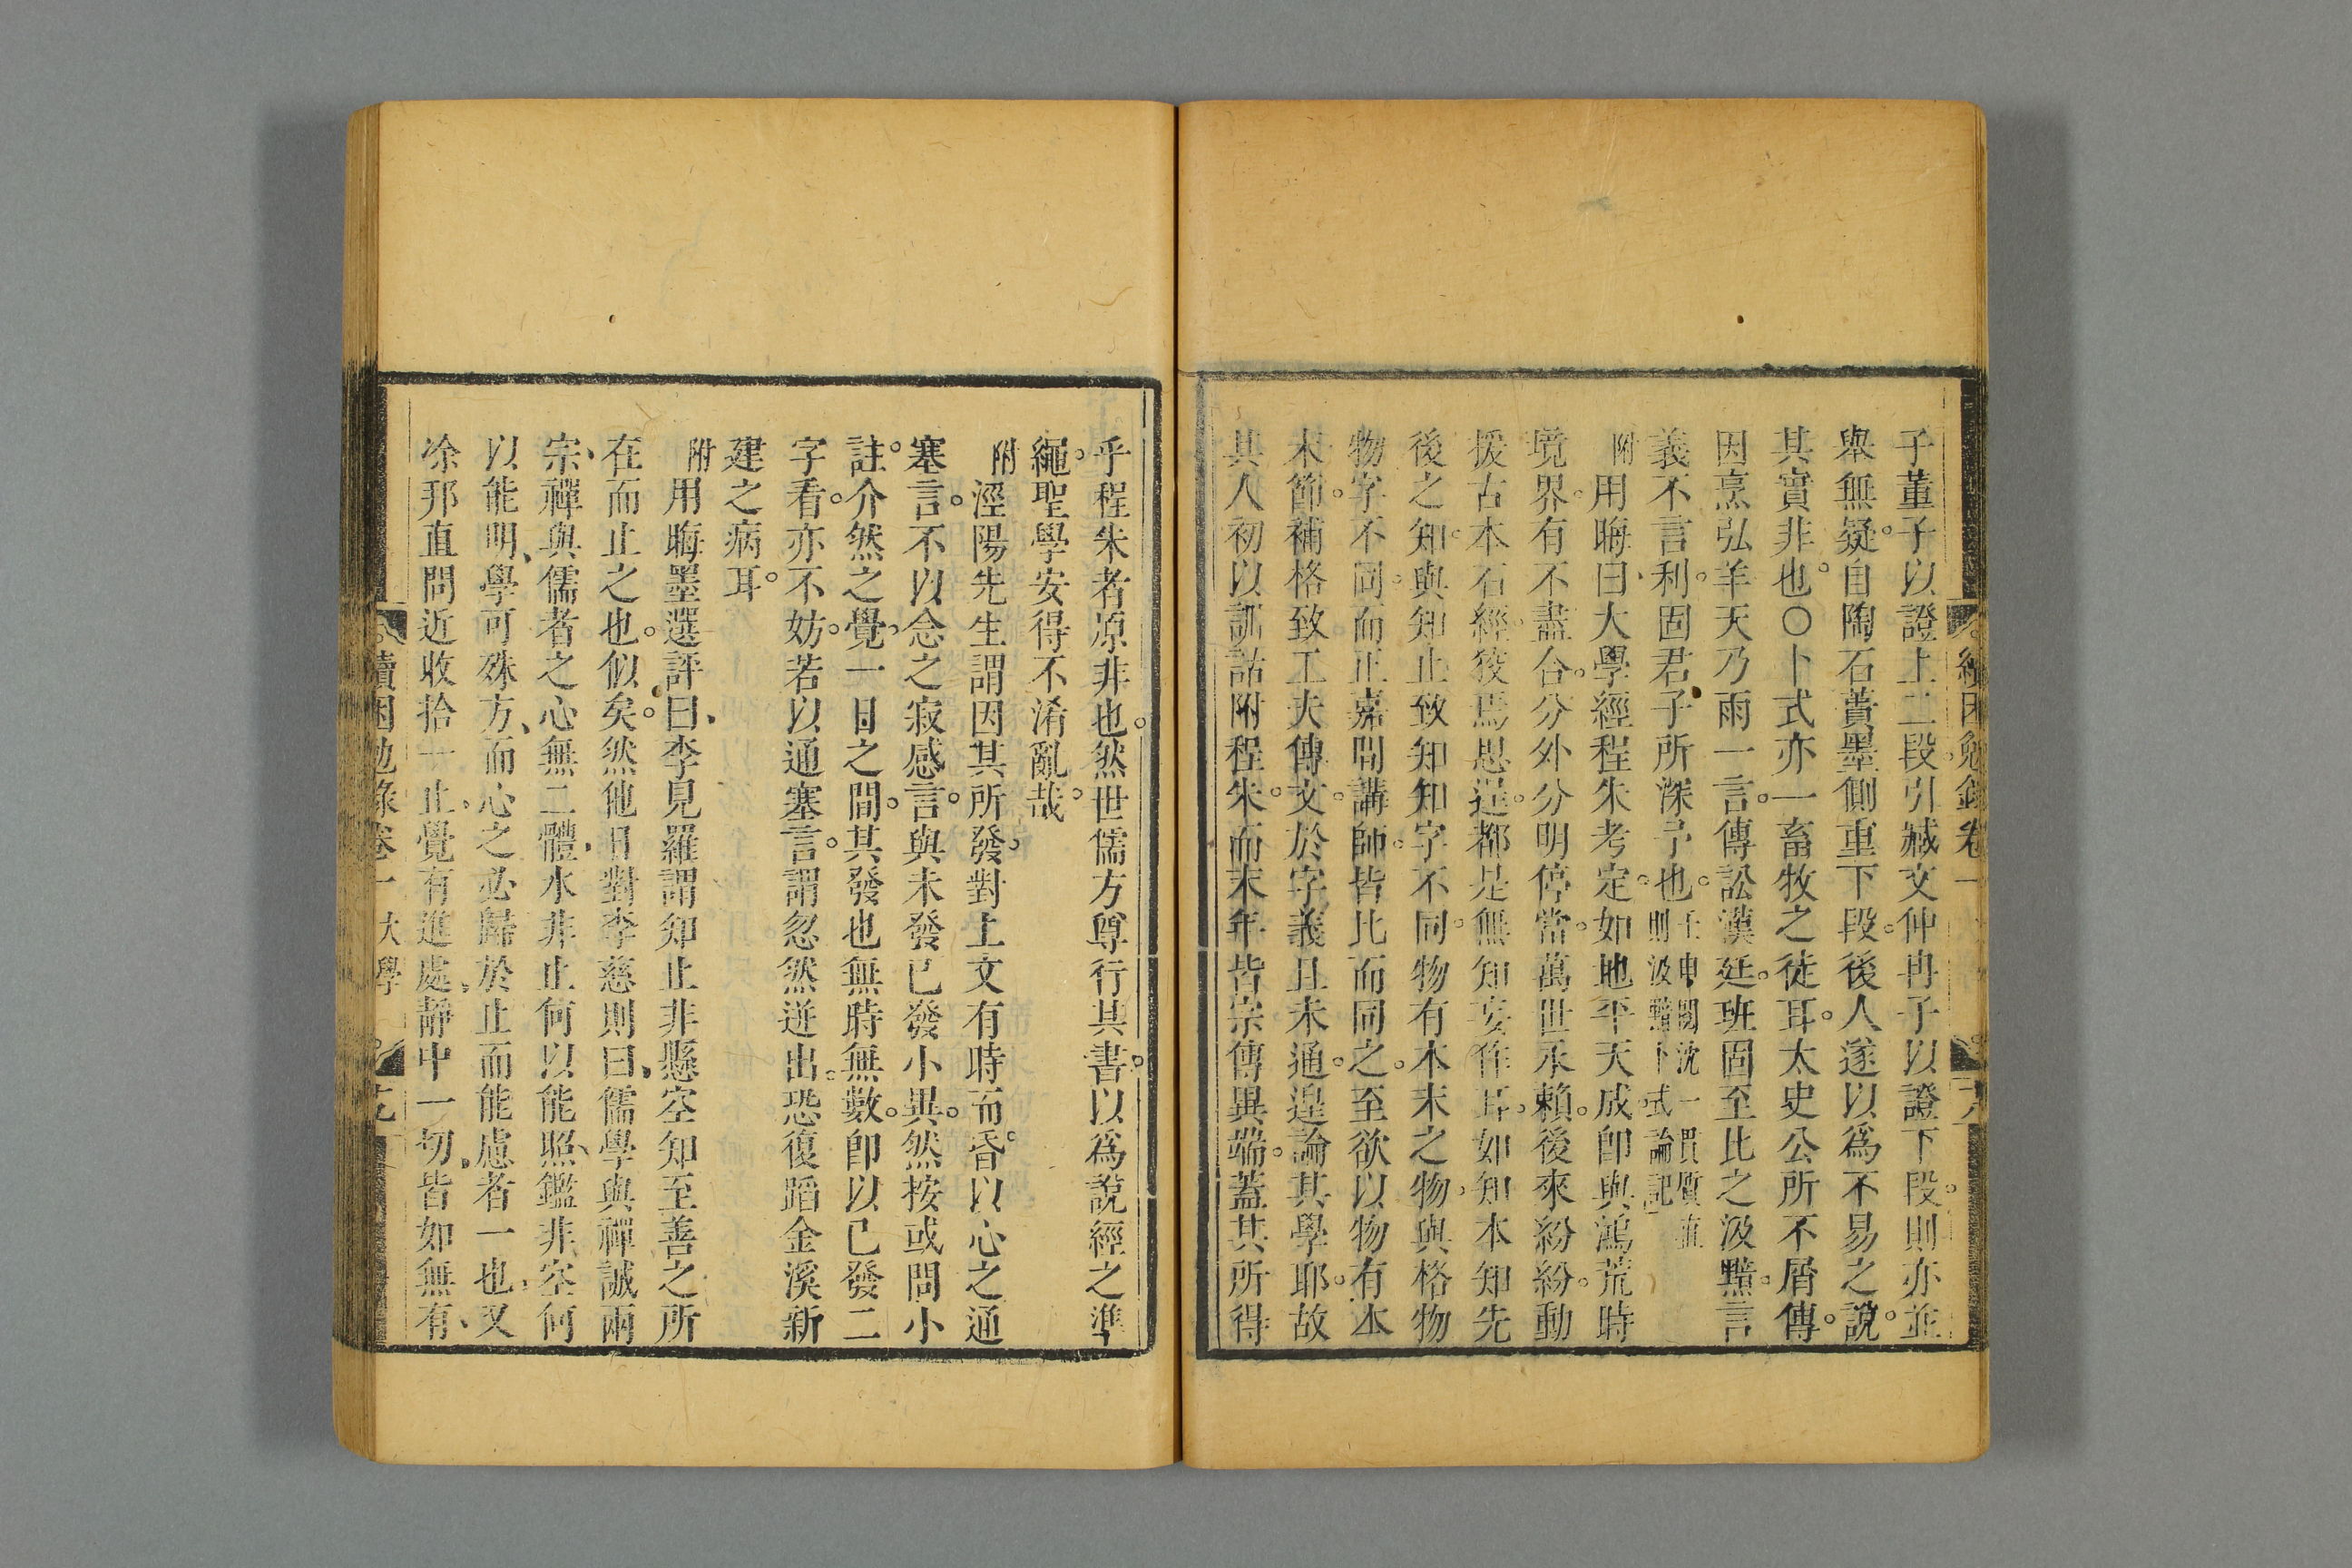 子董子以證上二段引臧文仲冉子以證下段則亦並
舉無疑自陶石蕢墨側重下段後人遂以爲不易之說
其實非也○卜式亦一畜牧之徒耳太史公所不屑傳
因烹弘羊天乃雨一言傳訟漢廷班固至比之汲黯言
義不言利固君子所深予也
壬申閩沈一貫質並
則汲黯卜式論記
附用晦曰大學經程朱考定如地平天成卽與鴻荒時
境界有不盡合分外分明停當萬世永賴後來紛紛動
援古本石經狡焉思逞都是無知妄作耳如知本知先
後之知與知止致知知字不同物有本末之物與格物
物字不同而正嘉間講師皆比而同之至欲以物有本
末節補格致工夫傳文於字義且未通遑論其學耶故
其人初以訓詁附程朱而末年皆宗傳異端蓋其所得
續困勉錄卷一
乎程朱者原非也然世儒方尊行其書以爲說經之準
繩聖學安得不淆亂哉
附涇陽先生謂因其所發對上文有時而昏以心之通
塞言不以念之寂感言與未發已發小異然按或問小
註介然之覺一日之間其發也無時無數卽以已發二
字看亦不妨若以通塞言謂忽然迸出恐復蹈金溪新
建之病耳
附用晦墨選評曰李見羅謂知止非懸空知至善之所
在而止之也似矣然他日對李慈則曰儒學與禪誠兩
宗禪與儒者之心無二體水非止何以能照鑑非空何
以能明學可殊方而心之必歸於止而能慮者一也又
凃邦直問近收拾一止覺有進處靜中一切皆如無有
續困勉錄卷一 大學